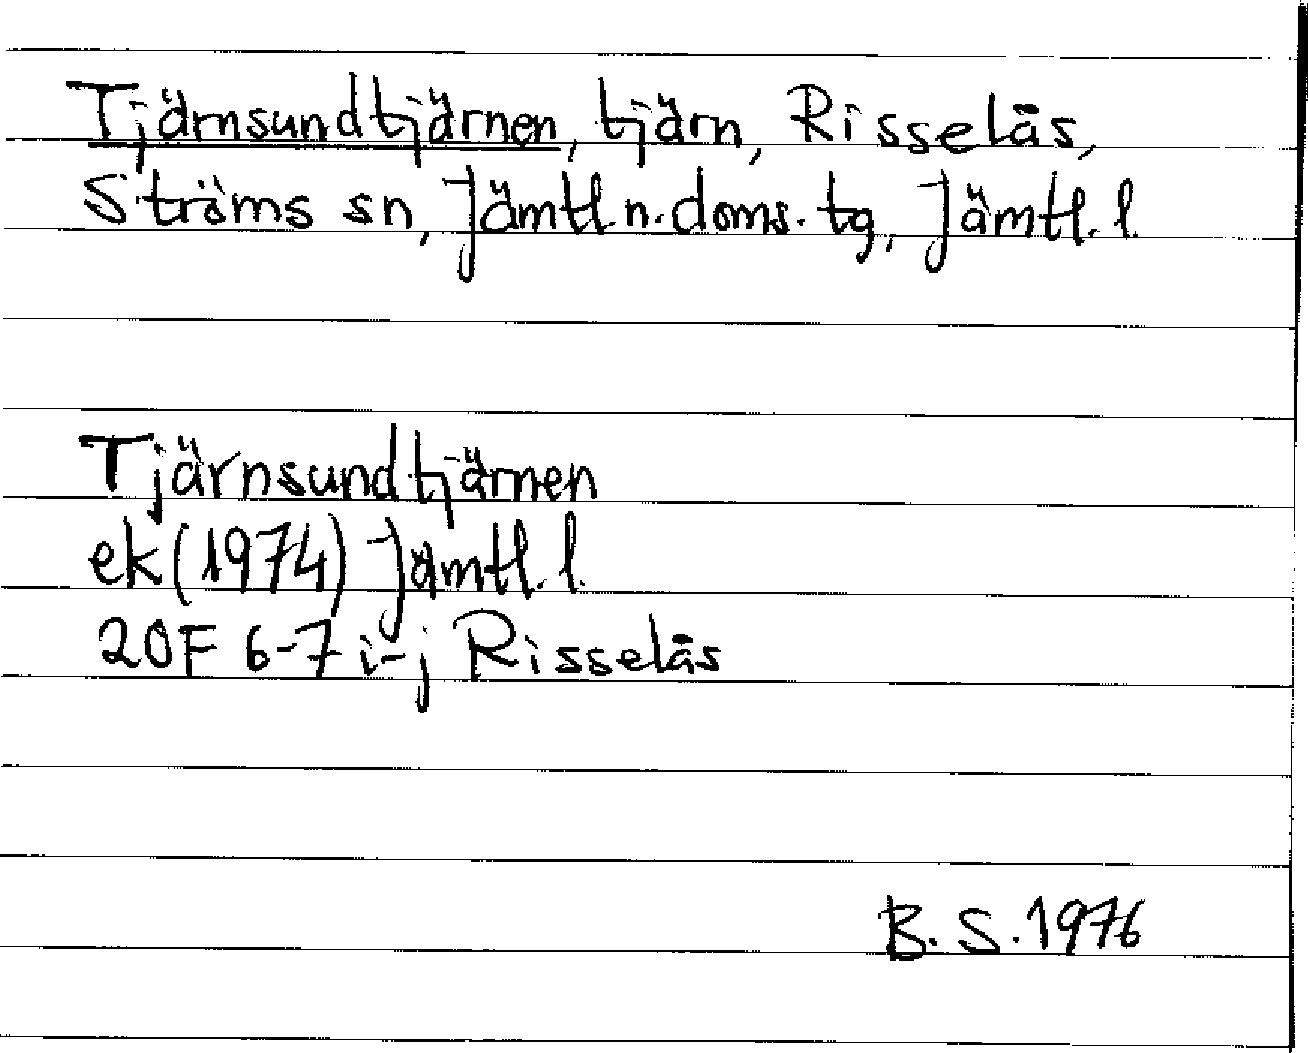 Tjärnsundtjärnen, tjärn, Risselås,
Ströms sn, Jämtl.n.doms.tg, Jämtl.l.
Tjärnsundtjärnen
ek(1974) Jämtl.l.
20F 6-7 i-j Risselås
B.S.1976